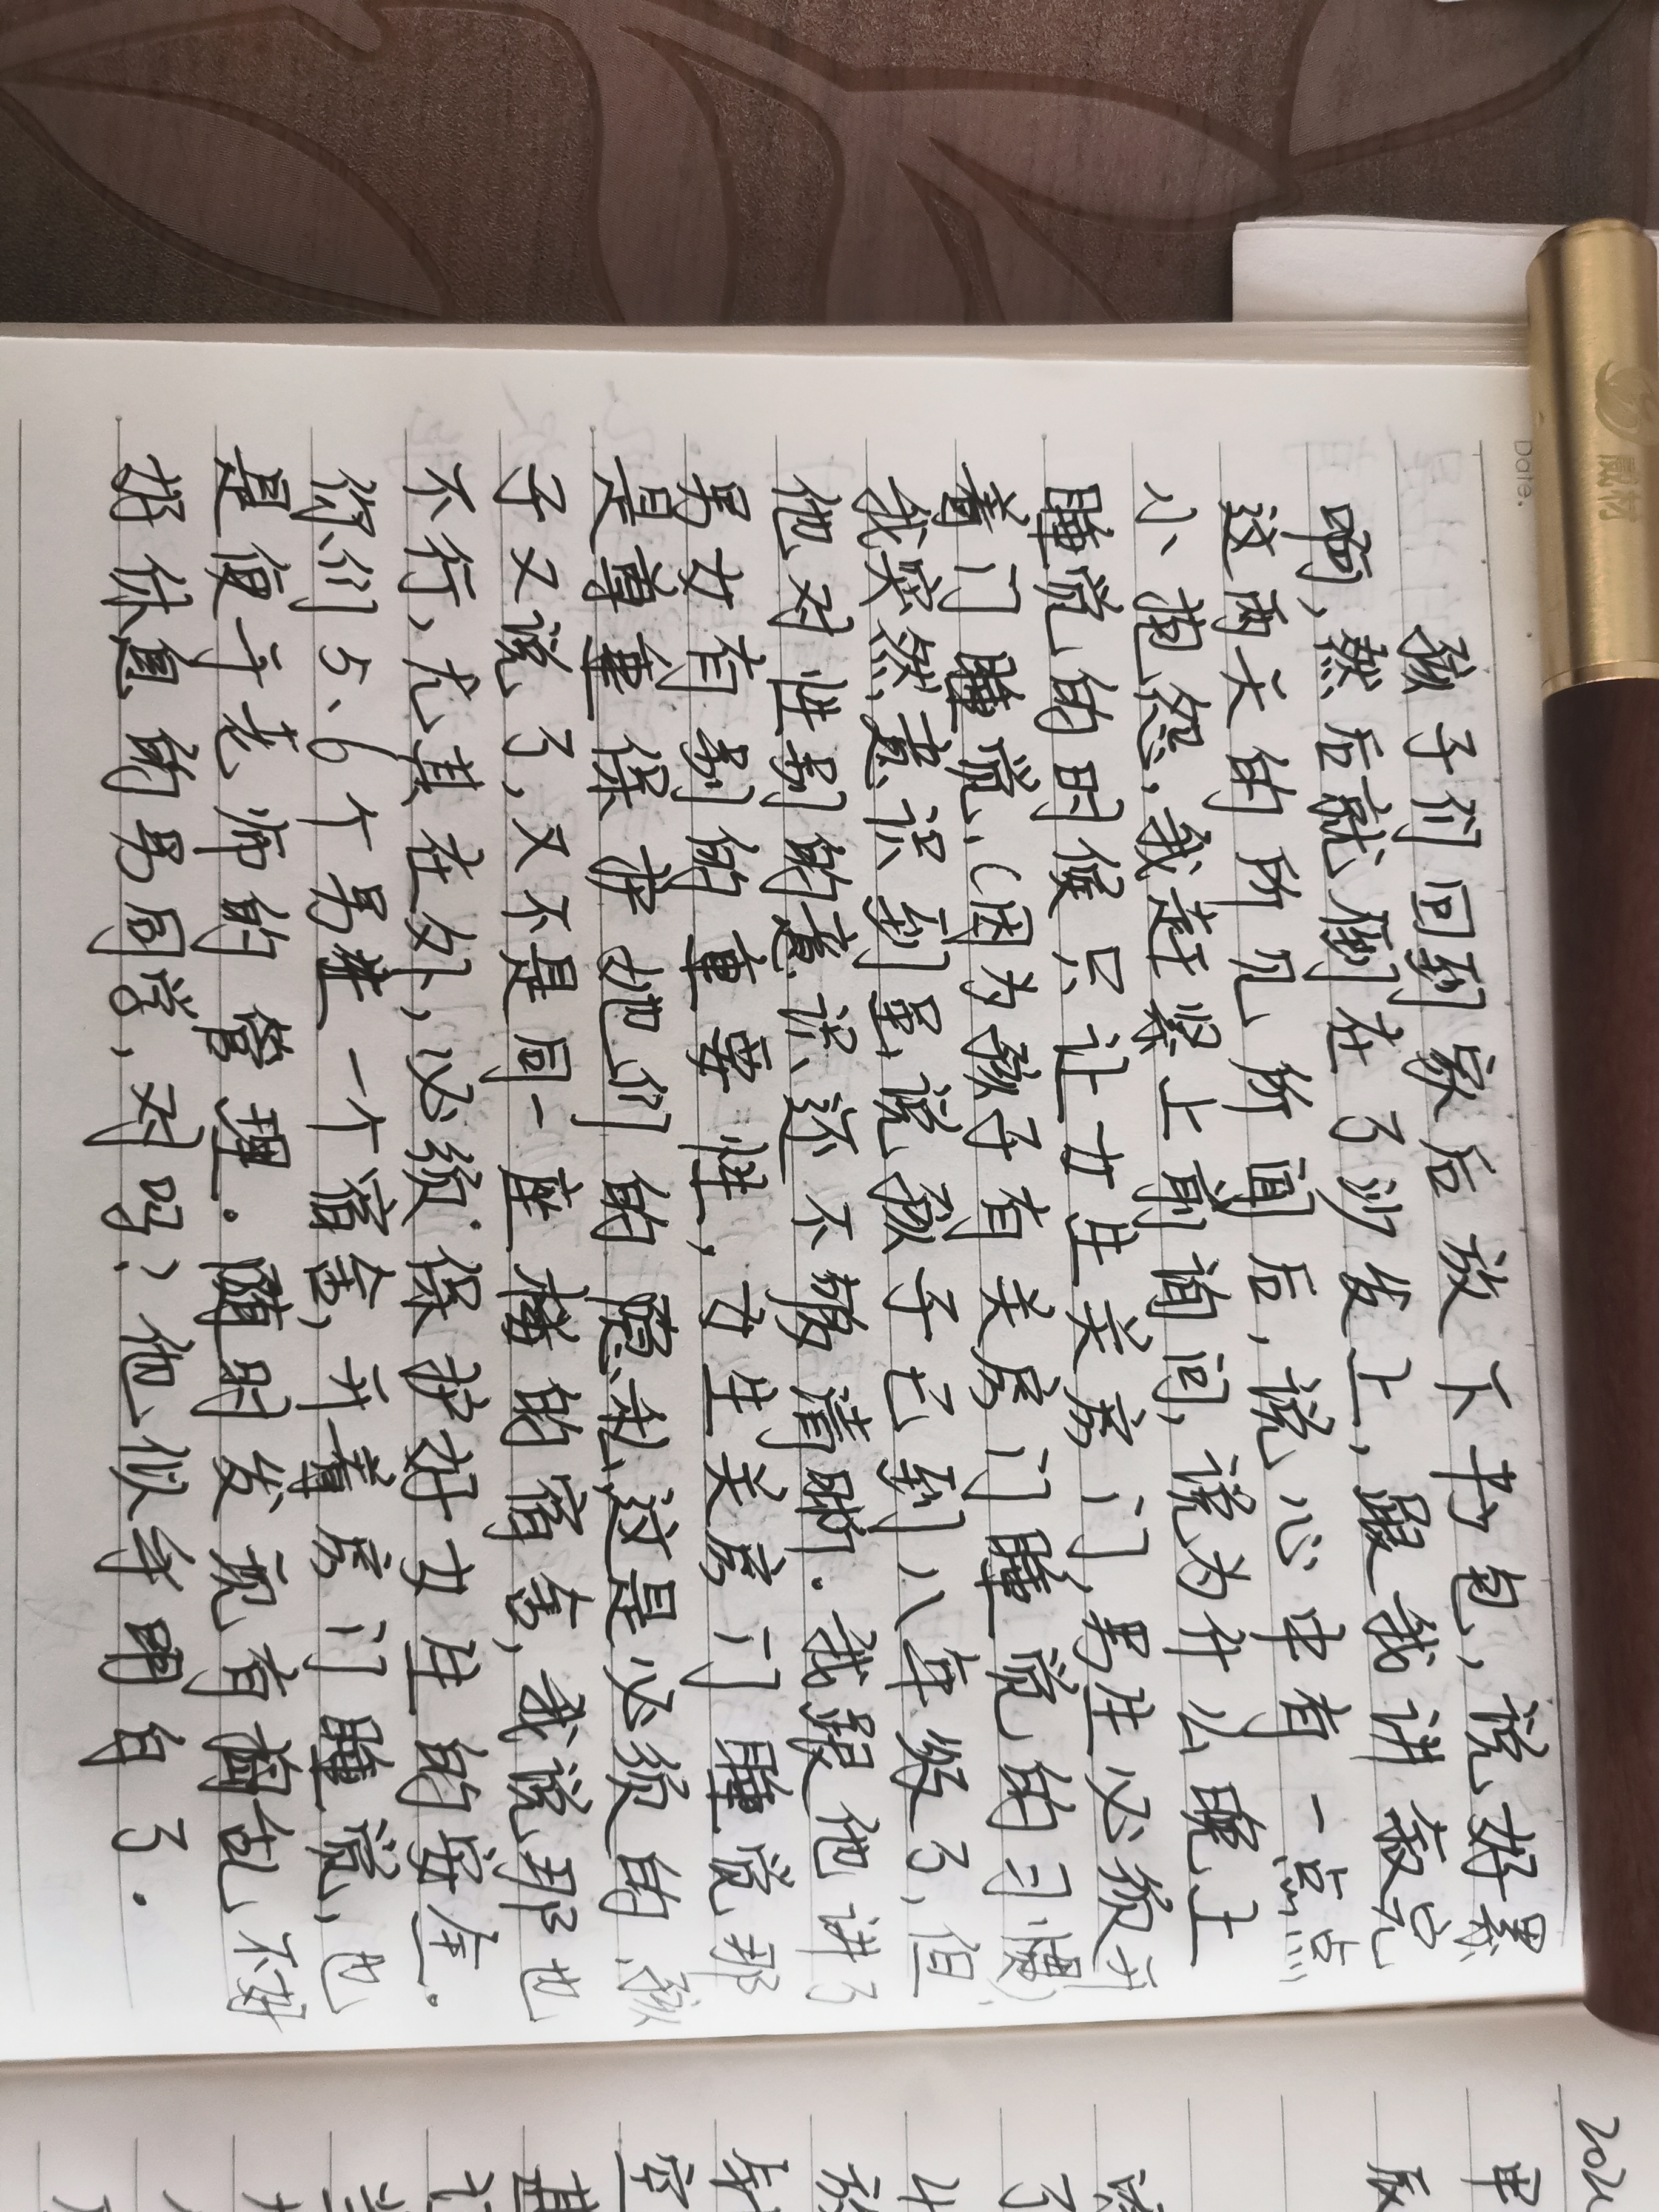 Date.
孩子们回到家后放下书包，说好累
啊，然后就倒在了沙发上，跟我讲叙完
这两天的所见所闻后，说心中有一点点
小抱怨，我赶紧上前询问，说为什么晚上
睡觉的时候只让女生关房门，男生必须开
着门睡觉，（因为孩子有关房门睡觉的习惯）
我突然意识到虽说孩子已到八年级了，但
他对性别的意识还不够清晰．我跟他讲了
男女有别的重要性，女生关房门睡觉那
是尊重保护她们的隐私，这是必须的．孩
子又说了，又不是同一座楼的宿舍，我说那也
不行，尤其在外，必须保护好女生的安全．
你们5、6个男生一个宿舍，开着房门睡觉，也
是便于老师的管理．随时发现有捣乱不好
好休息的男同学，对吗？他似乎明白了．
202